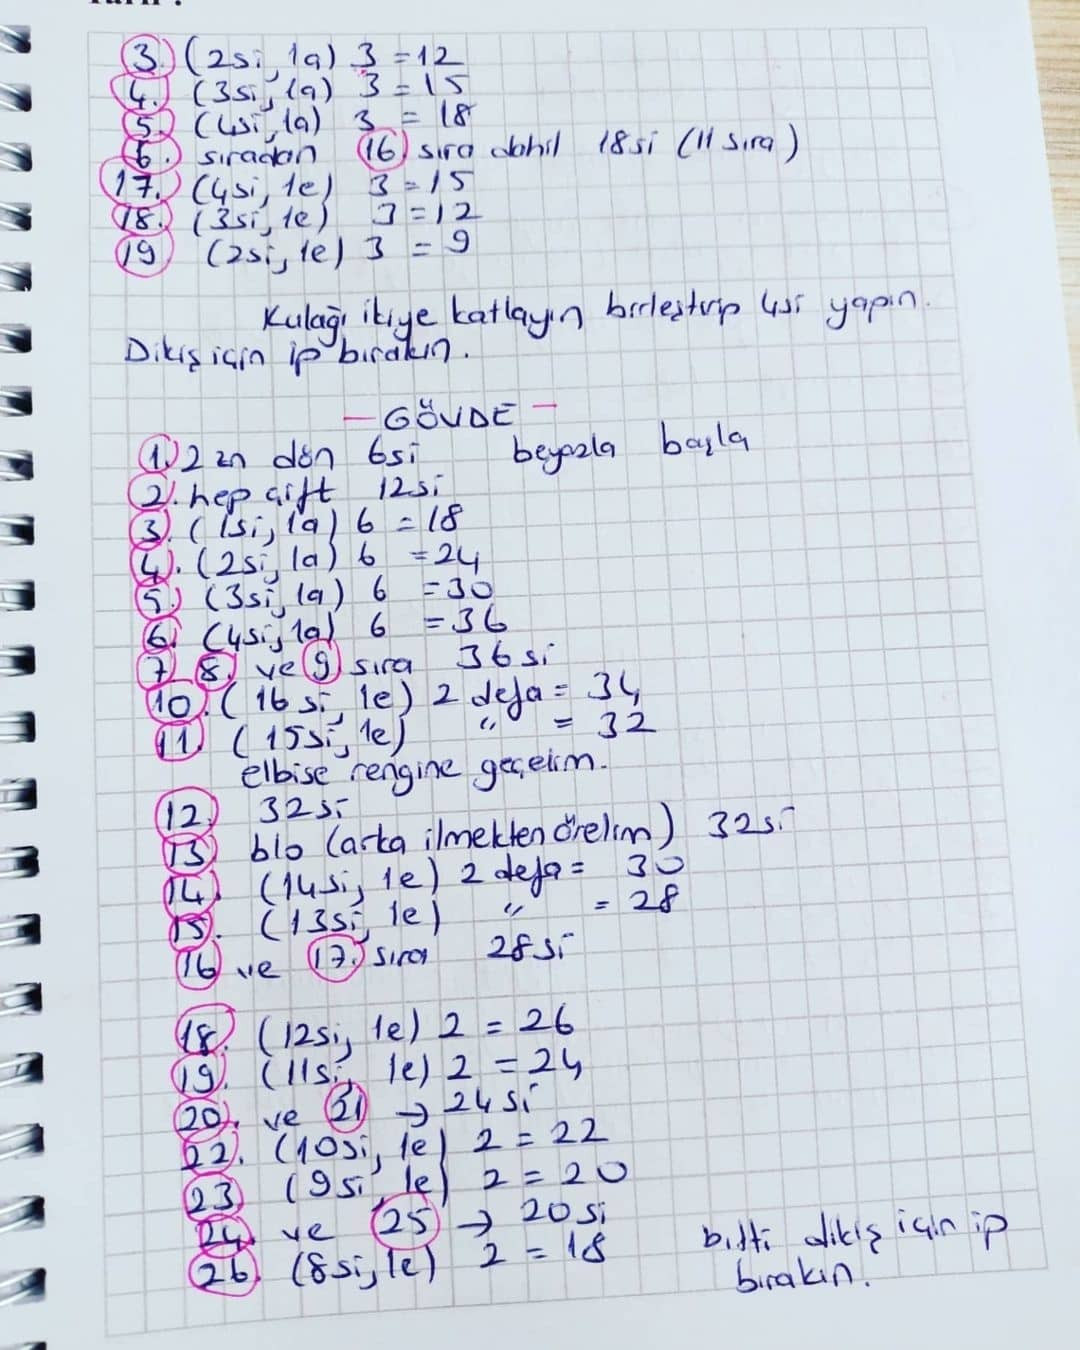 3. (2si, 1a) 3 = 12
4. (3si, 1a) 3 = 15
5. (4si, 1a) 3 = 18
6. sıradan 16 sıra dahil 18si (11 sıra)
17. (4si, 1e) 3 = 15
18. (3si, 1e) 3 = 12
19 (2si, 1e) 3 = 9
Kulağı ikiye katlayın birleştirip 4si yapın.
Dikiş için ip bırakın.
— GÖVDE —
1. 2 zn dön 6si beyazla başla
2. hep çift 12si
3. (1si, 1a) 6 = 18
4. (2si, 1a) 6 = 24
5. (3si, 1a) 6 = 30
6. (4si, 1a) 6 = 36
7 8. ve 9 sıra 36si
10. (16si, 1e) 2 defa = 34
11. (15si, 1e) " = 32
elbise rengine geçelim.
12. 32si
13 blo (arka ilmekten örelim) 32si
14. (14si, 1e) 2 defa = 30
15. (13si, 1e) " = 28
16 ve 17. sıra 28si
18. (12si, 1e) 2 = 26
19. (11si, 1e) 2 = 24
20. ve 21 → 24si
22. (10si, 1e) 2 = 22
23 (9si, 1e) 2 = 20
24. ve 25 → 20si
26. (8si, 1e) 2 = 18 bitti dikiş için ip
bırakın.